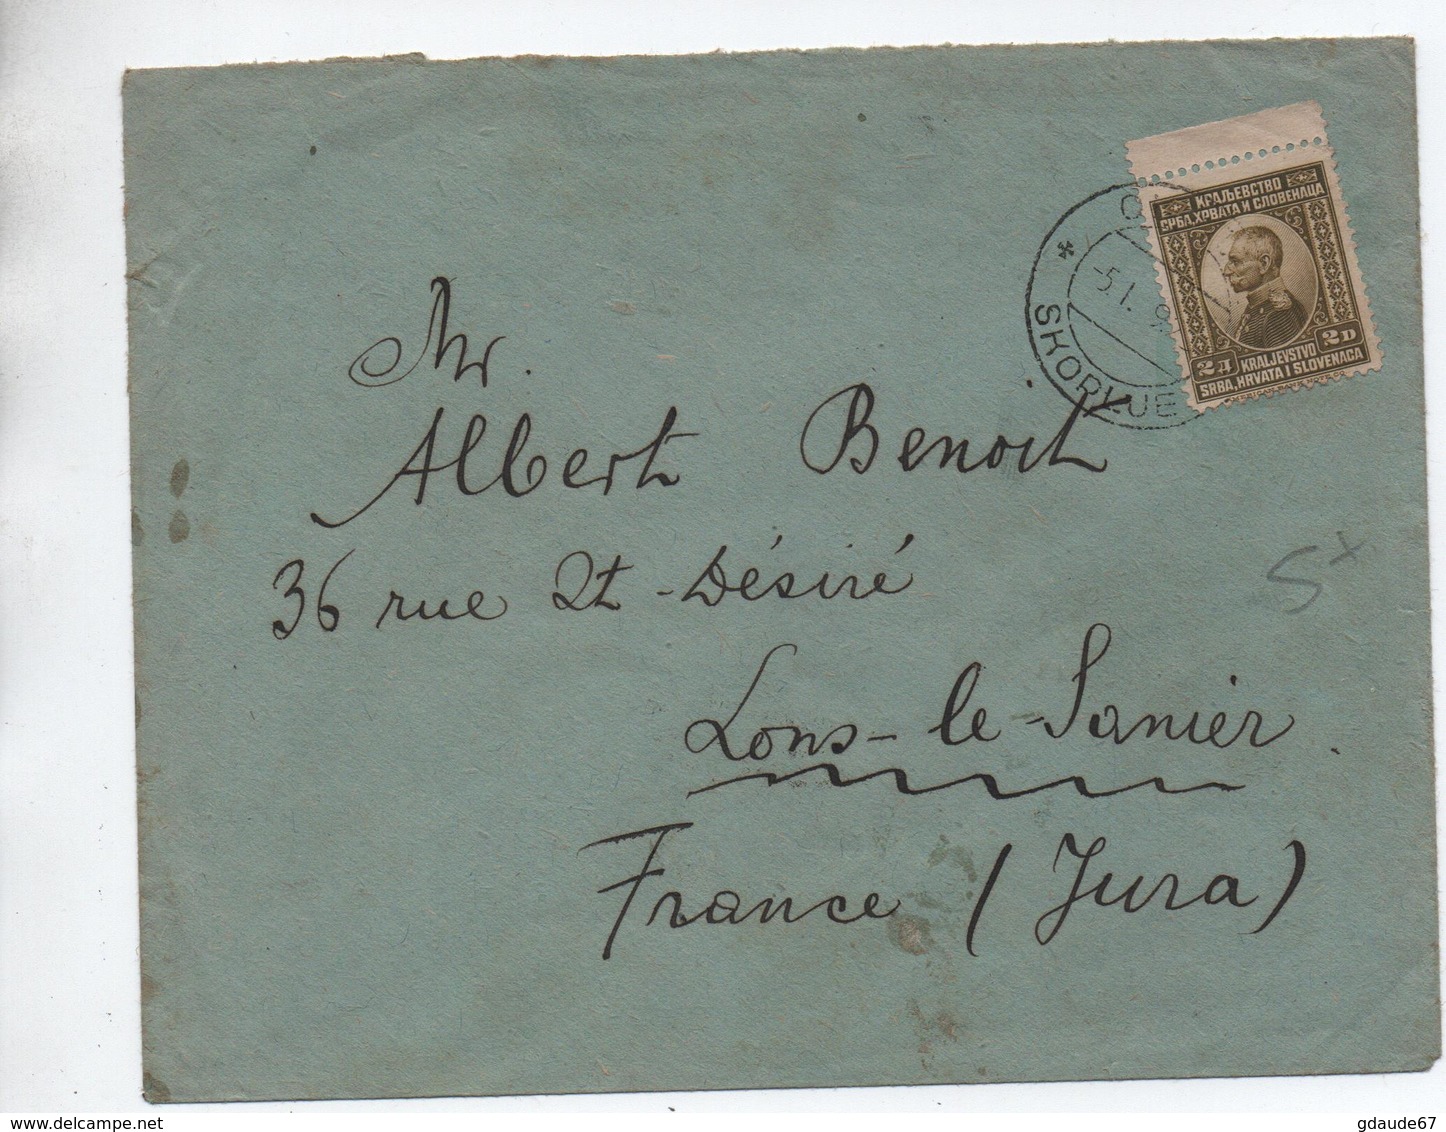 КРАЉЕВСТВО
СРБА, ХРВАТА И СЛОВЕНАЦА
2 Д
2 D
KRALJEVSTVO
SRBA, HRVATA I SLOVENACA
-5.1.
Mr.
Albert Benoit
36 rue St-Désiré
Lons-le-Sanier.
France (Jura)
delcampe.net
gdaude67